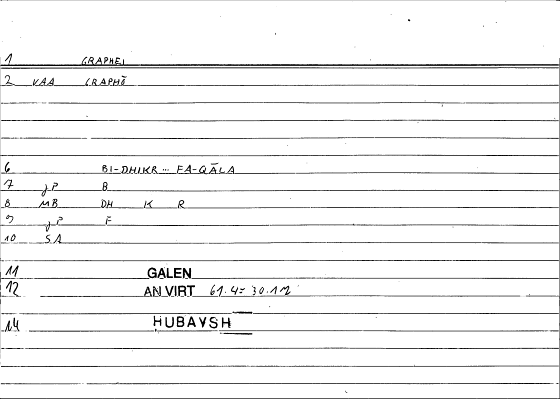 1 GRAPHEI
2 VAA GRAPHŌ
6 BI-DHIKR ... FA-QĀLA
7 JP B
8 MB DH K R
9 JP F
10 SA
11 GALEN
12 AN VIRT 61.4 = 30.12
14 HUBAYSH